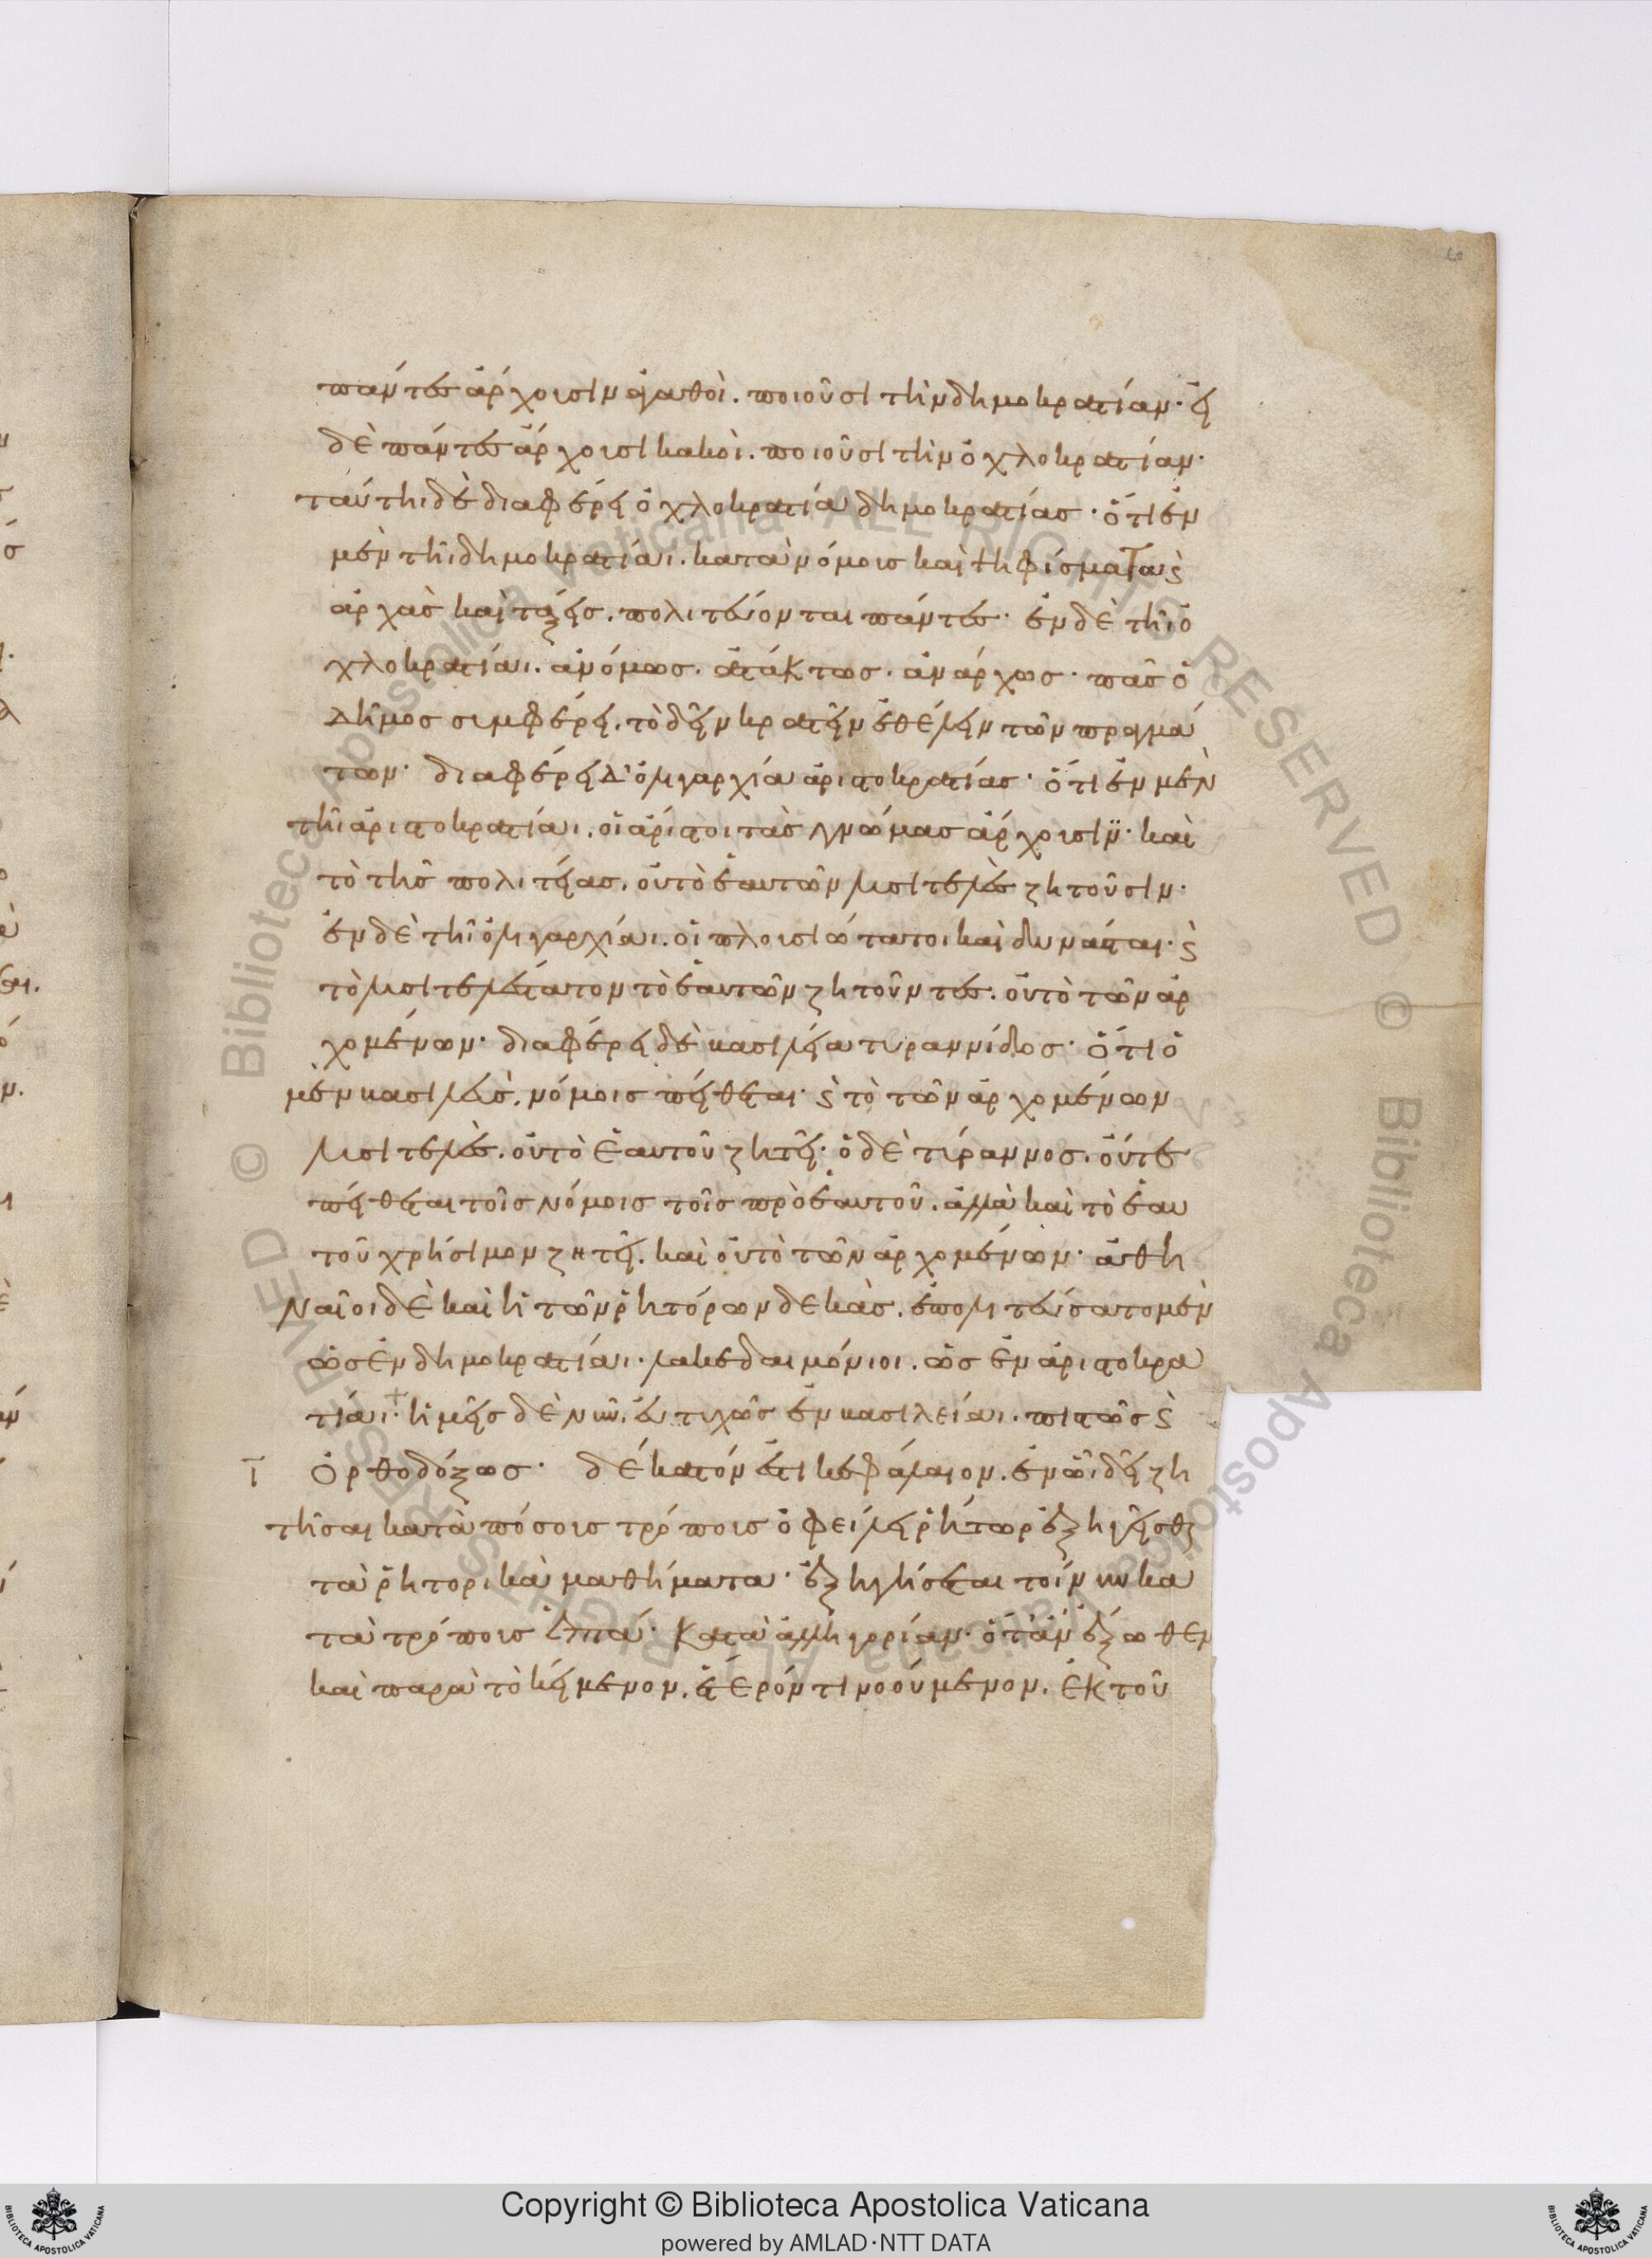 πάντες ἄρχουσιν ἀγαθοὶ. ποιοῦσι τὴν δημοκρατίαν· εἰ
δὲ πάντες ἄρχουσι κακοὶ. ποιοῦσι τὴν ὀχλοκρατίαν·
ταύτηι δὲ διαφέρει ὀχλοκρατία δημοκρατίας· ὅτι ἐν
μὲν τῆι δημοκρατίαι. κατὰ νόμους καὶ ψηφίσματα ϛ
ἀρχὰς καὶ τάξεις. πολιτεύονται πάντες· ἐν δὲ τῆι ὀ
χλοκρατίαι. ἀνόμως. ἀτάκτως. ἀνάρχως· πᾶς ὁ
δῆμος συμφέρει. τὸ δεῖν κρατεῖν ἐθέλειν τῶν πραγμά
των· διαφέρει δ' ὀλιγαρχία ἀριστοκρατίας· ὅτι ἐν μὲν
τῆι ἀριστοκρατίαι. οἱ ἄριστοι τὰς γνώμας ἄρχουσιν· καὶ
τὸ τῆς πολιτείας. οὐ τὸ ἑαυτῶν λυσιτελὲς ζητοῦσιν·
ἐν δὲ τῆι ὀλιγαρχίαι. οἱ πλουσιώτατοι καὶ δυνάσται· ϛ
τὸ λυσιτελέστατον τὸ ἑαυτῶν ζητοῦντες. οὐ τὸ τῶν ἀρ
χομένων· διαφέρει δὲ βασιλεία τυραννίδος· ὅτι ὁ
μὲν βασιλεὺς. νόμοις πείθεται· ϛ τὸ τῶν ἀρχομένων
λυσιτελὲς. οὐ τὸ ἑαυτοῦ ζητεῖ· ὁ δὲ τύραννος. οὔτε
πείθεται τοῖς νόμοις τοῖς πρὸ ἑαυτοῦ. ἀλλὰ καὶ τὸ ἑαυ
τοῦ χρήσιμον ζητεῖ. καὶ οὐ τὸ τῶν ἀρχομένων· ἀθη
ναῖοι δὲ καὶ ἡ τῶν ῥητόρων δεκὰς. ἐπολιτεύσατο μὲν
ὡς ἐν δημοκρατίαι· λακεδαιμόνιοι. ὡς ἐν ἀριστοκρα
τίαι· ἡμεῖς δὲ νῦν. εὐτυχῶς ἐν βασιλείαι. πιστῶς ϛ
ι ὀρθοδόξως· δέκατόν ἐστι κεφάλαιον. ἐν ὧι δεῖ ζη
τῆσαι κατὰ πόσους τρόπους ὀφείλει ῥήτωρ ἐξηγεῖσθαι
τὰ ῥητορικὰ μαθήματα· ἐξηγήσεται τοίνυν κα
τὰ τρόπους ἑπτά· κατὰ ἀλληγορίαν· ὅταν ἔξωθεν
καὶ παρὰ τὸ κείμενον. ᾖ ἕτερόν τι νοούμενον. ἐκ τοῦ